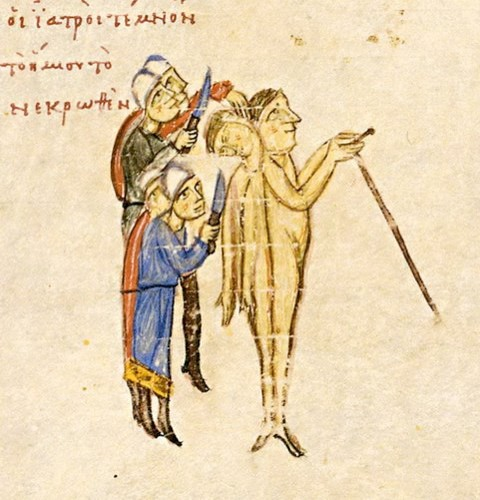 οἱ ἰατροὶ τέμνον
τὸ ἥμισυ τὸ
νεκρωθέν